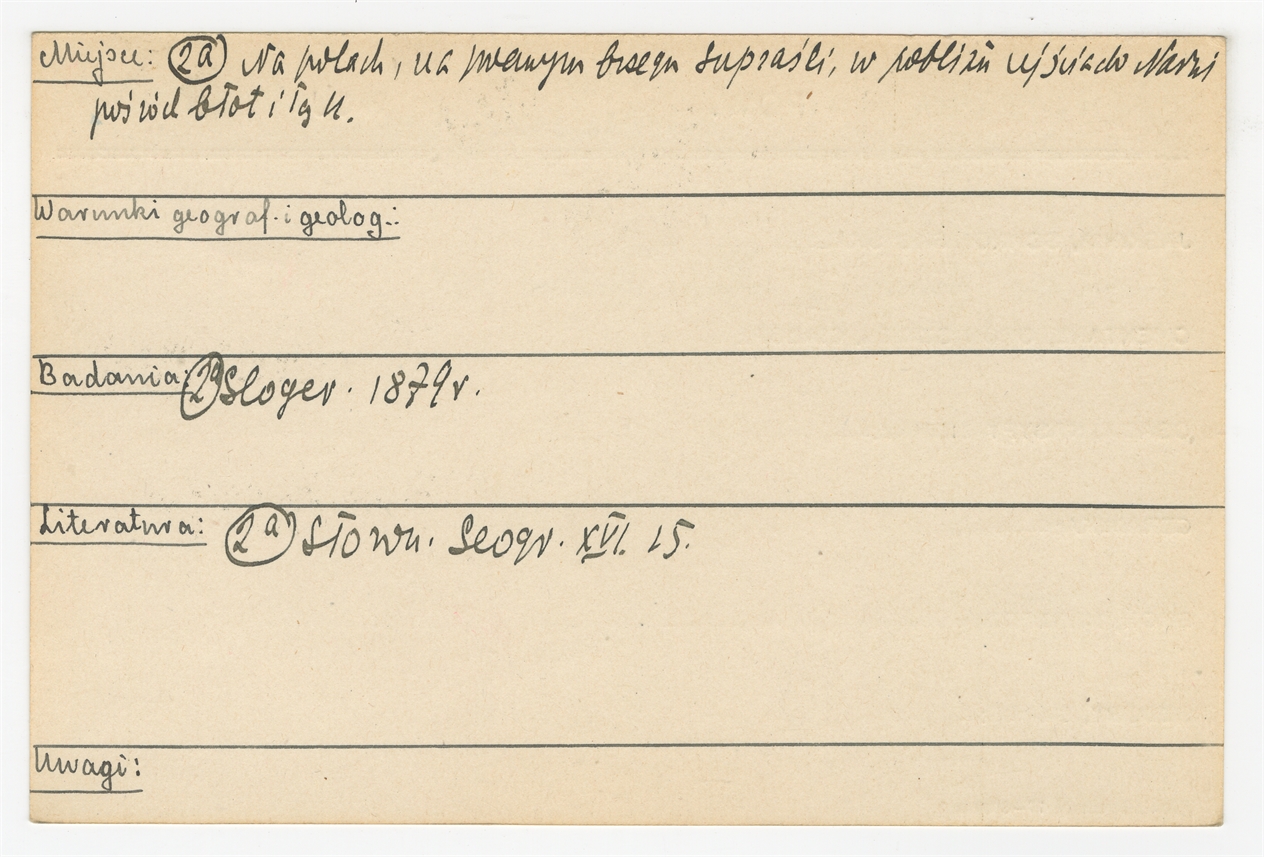 Miejsce: 2a Na polach, na prawym brzegu Supraśli, w pobliżu ujścia do Narwi
pośród błot i łąk.
Warunki geograf. i geolog.:
Badania: 2a Gloger. 1879 r.
Literatura: 2a Słown. Geogr. XVI. 15.
Uwagi: